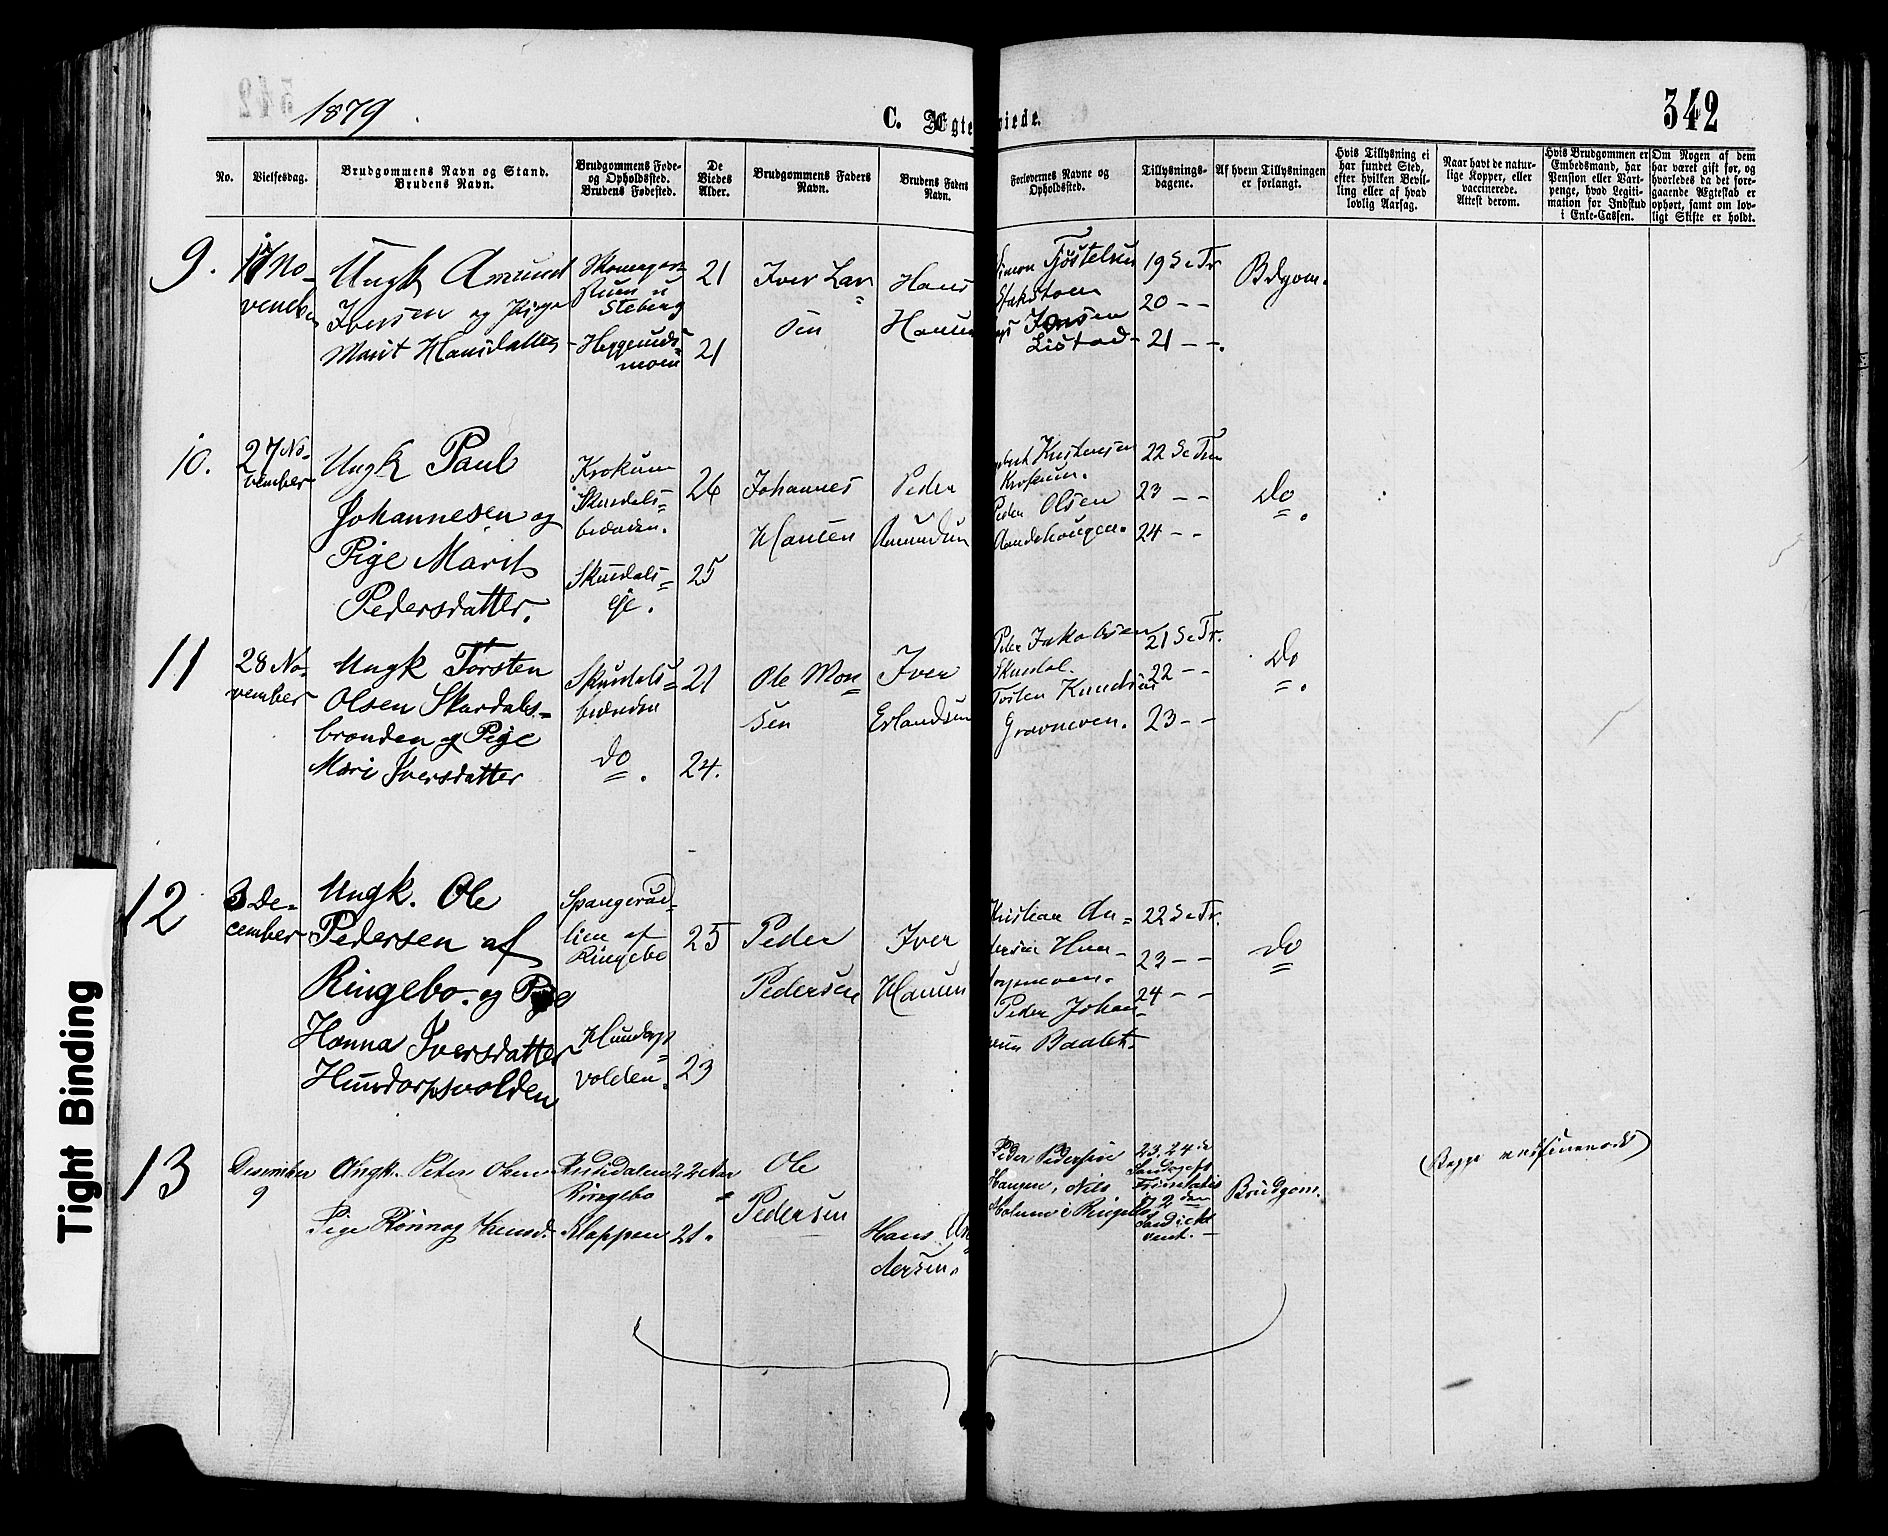 1879
C. Ægte viede.
342
No.
Vielsesdag.
Brudgommens Navn og Stand.
Brudens Navn.
Brudgommens Føde-
og Opholdssted.
Brudens Fødested.
De
Viedes
Alder.
Brudgommens Faders
Navn.
Brudens Faders
Navn.
Forlovernes Navne og
Opholdssted.
Tillysnings-
dagene.
Af hvem Tillysningen
er forlangt.
Hvis Tillysning ei
har fundet Sted,
efter hvilken Bevil-
ling eller af hvad
lovlig Aarsag.
Naar havt de natur-
lige Kopper, eller
vaccinerede.
Attest derom.
Hvis Brudgommen er
Embedsmand, har
Pension eller Vart-
penge, hvad Legiti-
mation for Indskud
i Enke-Cassen.
Om Nogen af dem
har været gift før, og
hvorledes da det fore-
gaaende Ægteskab er
ophørt, samt om lov-
ligt Skifte er holdt.
9.
No-
vember
Ungk Amund
Iversen og Pige
Marit Hansdatter
Steberg
Heggeruds-
moen
21
21
Iver Lar
sen
Hans
Hansen
Simon Tjøstelsen
Jonsen
Listad
19 S e Tr
20 - -
21 - -.
Bdgom.
10.
27 No-
vember
Ungk Paul
Johannesen og
Pige Marit
Pedersdatter.
Krokum
Skurdals-
brænden.
Skurdals-
eje.
26
25
Johannes
Hansen
Peder
Amundsen
Peder Olsen
22 S e Trin
23 - -
24 - -
do.
11
28 No-
vember
Ungk Torsten
Olsen Skurdals-
brænden og Pige
Mari Iversdatter
Skurdals-
brænden
do.
21
24.
Ole Mon-
sen
Iver
Erlandsen
Peder Jakobsen
Skurdal.
Tosten Knudsen
21 S e Tr.
22 - -
23 - -
do.
12
3 De-
cember
Ungk. Ole
Pedersen af
Ringebo. og Pige
Hanna Iversdatter
Hundorpsvolden
lien af
Ringebo
Hundorps-
volden.
25
23
Peder
Pedersen
Iver
Hansen
Kristian An-
dersen Hun-
Peder Johan-
22 S e Tr.
23 - -
24 - -
do
13
Desember
9
Ungk. Peter Olsen
Pige Rønnog Hansd.
Ringebo
Kloppen
22 Aar
21.
Ole
Pedersen
Hans An-
dersen.
Peder Pedersen
Haugen, Nils
Holum i Ringebo
23, 24 de
Søndag eft
Trinitatis
og 2 den
Sønd i Ad
vent.
Brudgom.
(Begge vaksinerede)
Tight Binding